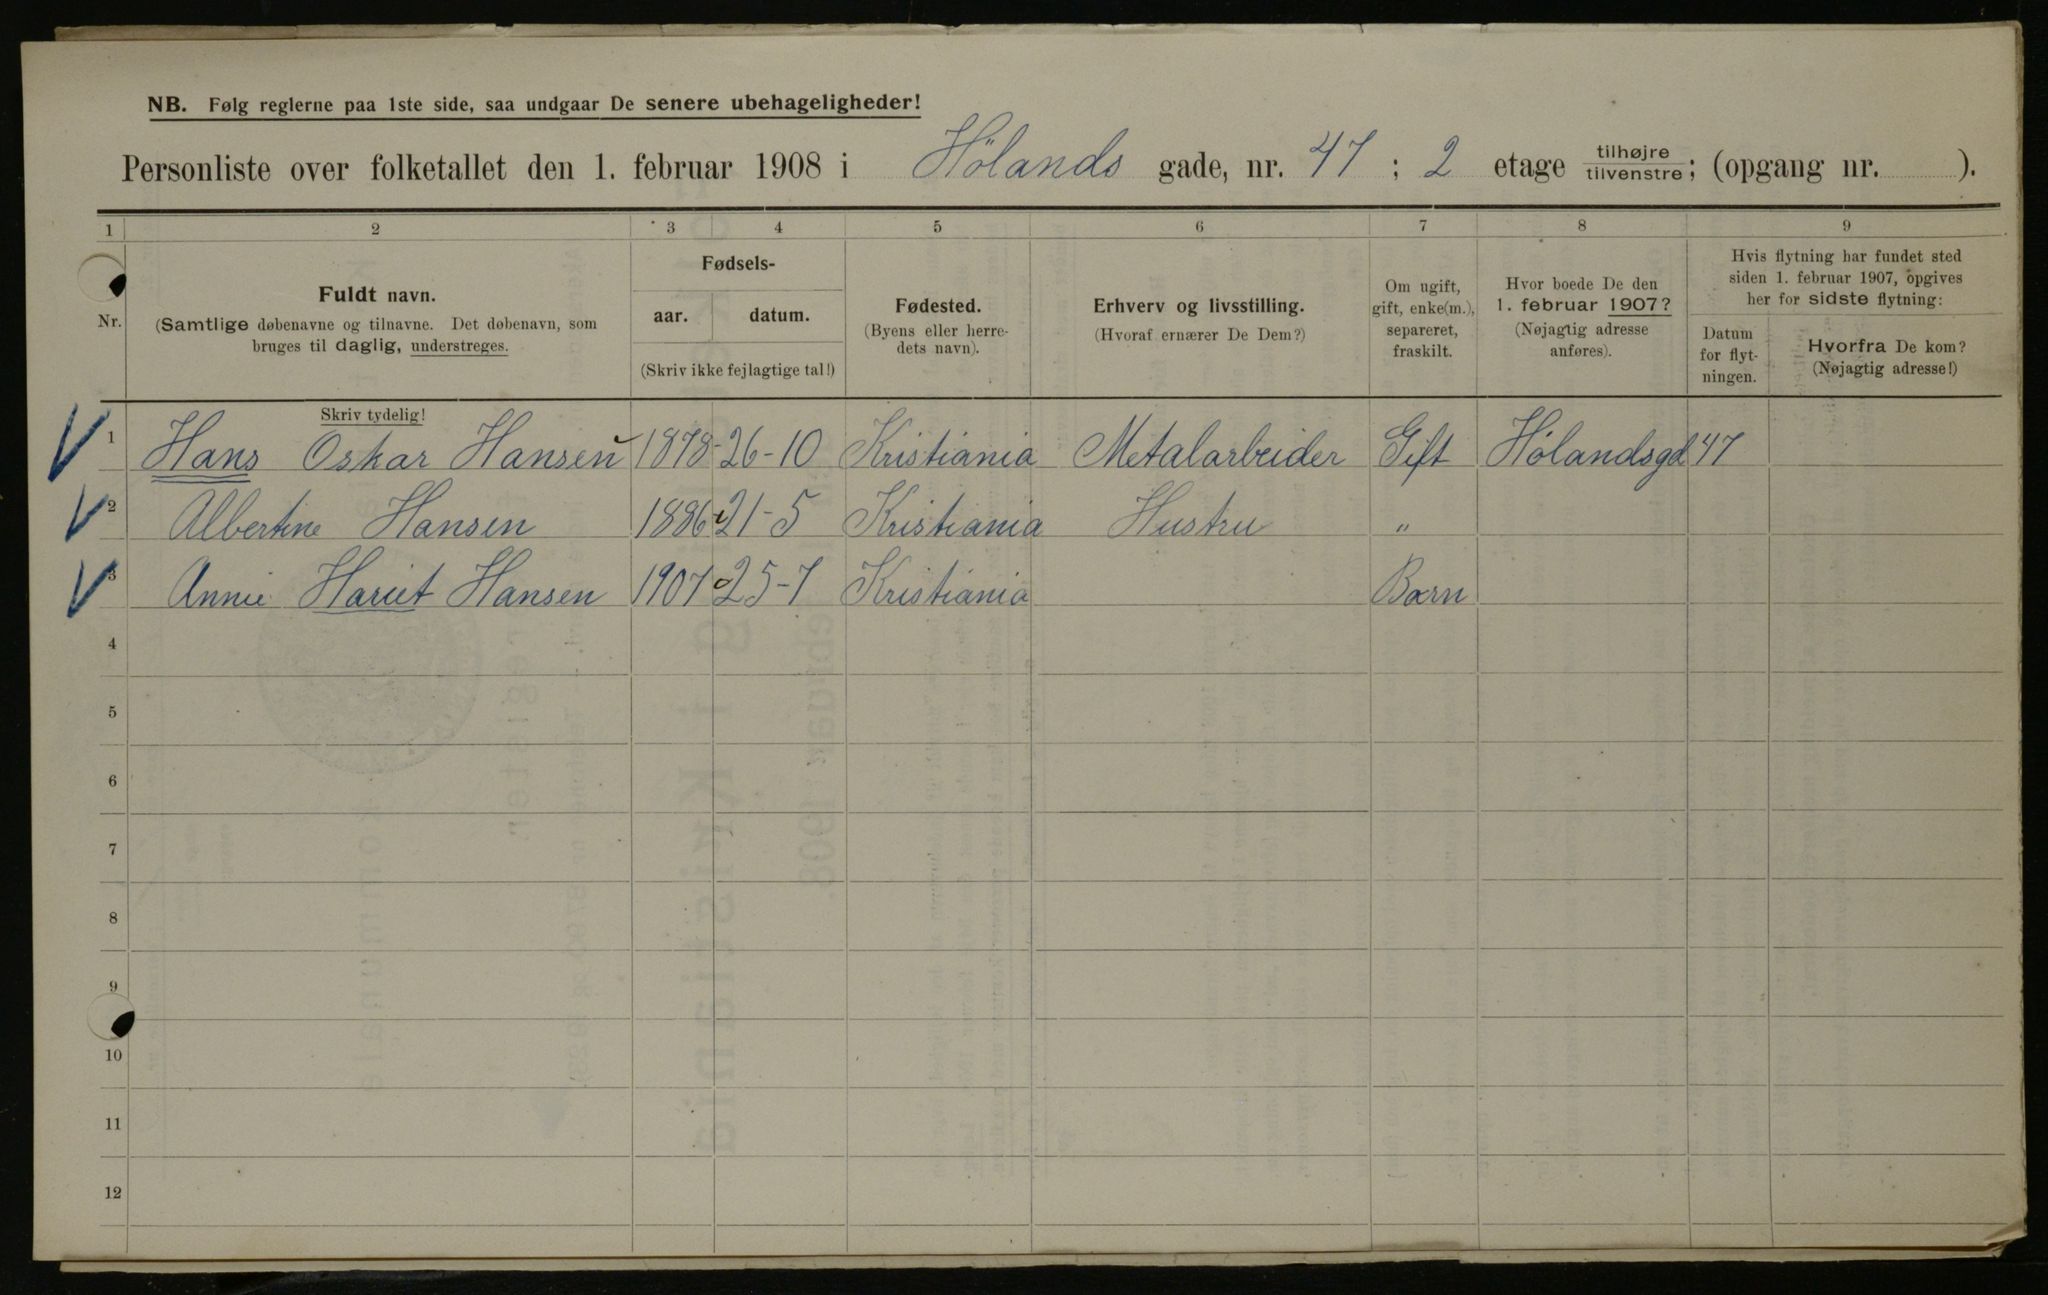 NB. Følg reglerne paa 1ste side, saa undgaar De senere ubehageligheder!
Personliste over folketallet den 1. februar 1908 i Hølands gade, nr. 47 ; 2 etage tilhøjre tilvenstre ; (opgang nr. ).
1 2 3 4 5 6 7 8 9
Nr.
Fuldt navn.
(Samtlige døbenavne og tilnavne. Det døbenavn, som
bruges til daglig, understreges.
Skriv tydelig!
Fødsels-
aar. datum.
(Skriv ikke fejlagtige tal!)
Fødested.
(Byens eller herre-
dets navn).
Erhverv og livsstilling.
(Hvoraf ernærer De Dem?)
Om ugift,
gift, enke(m.),
separeret,
fraskilt.
Hvor boede De den
1. februar 1907?
(Nøjagtig adresse
anføres).
Hvis flytning har fundet sted
siden 1. februar 1907, opgives
her for sidste flytning:
Datum
for flyt-
ningen.
Hvorfra De kom?
(Nøjagtig adresse!)
1 Hans Oskar Hansen 1878 - 26-10 Kristiania Metalarbeider Gift Hølandsgd 47
2 Albertine Hansen 1886 21-5 Kristiania Hustru "
3 Annie Hariet Hansen 1907 25-7 Kristiania Barn
4
5
6
7
8
9
10
11
12